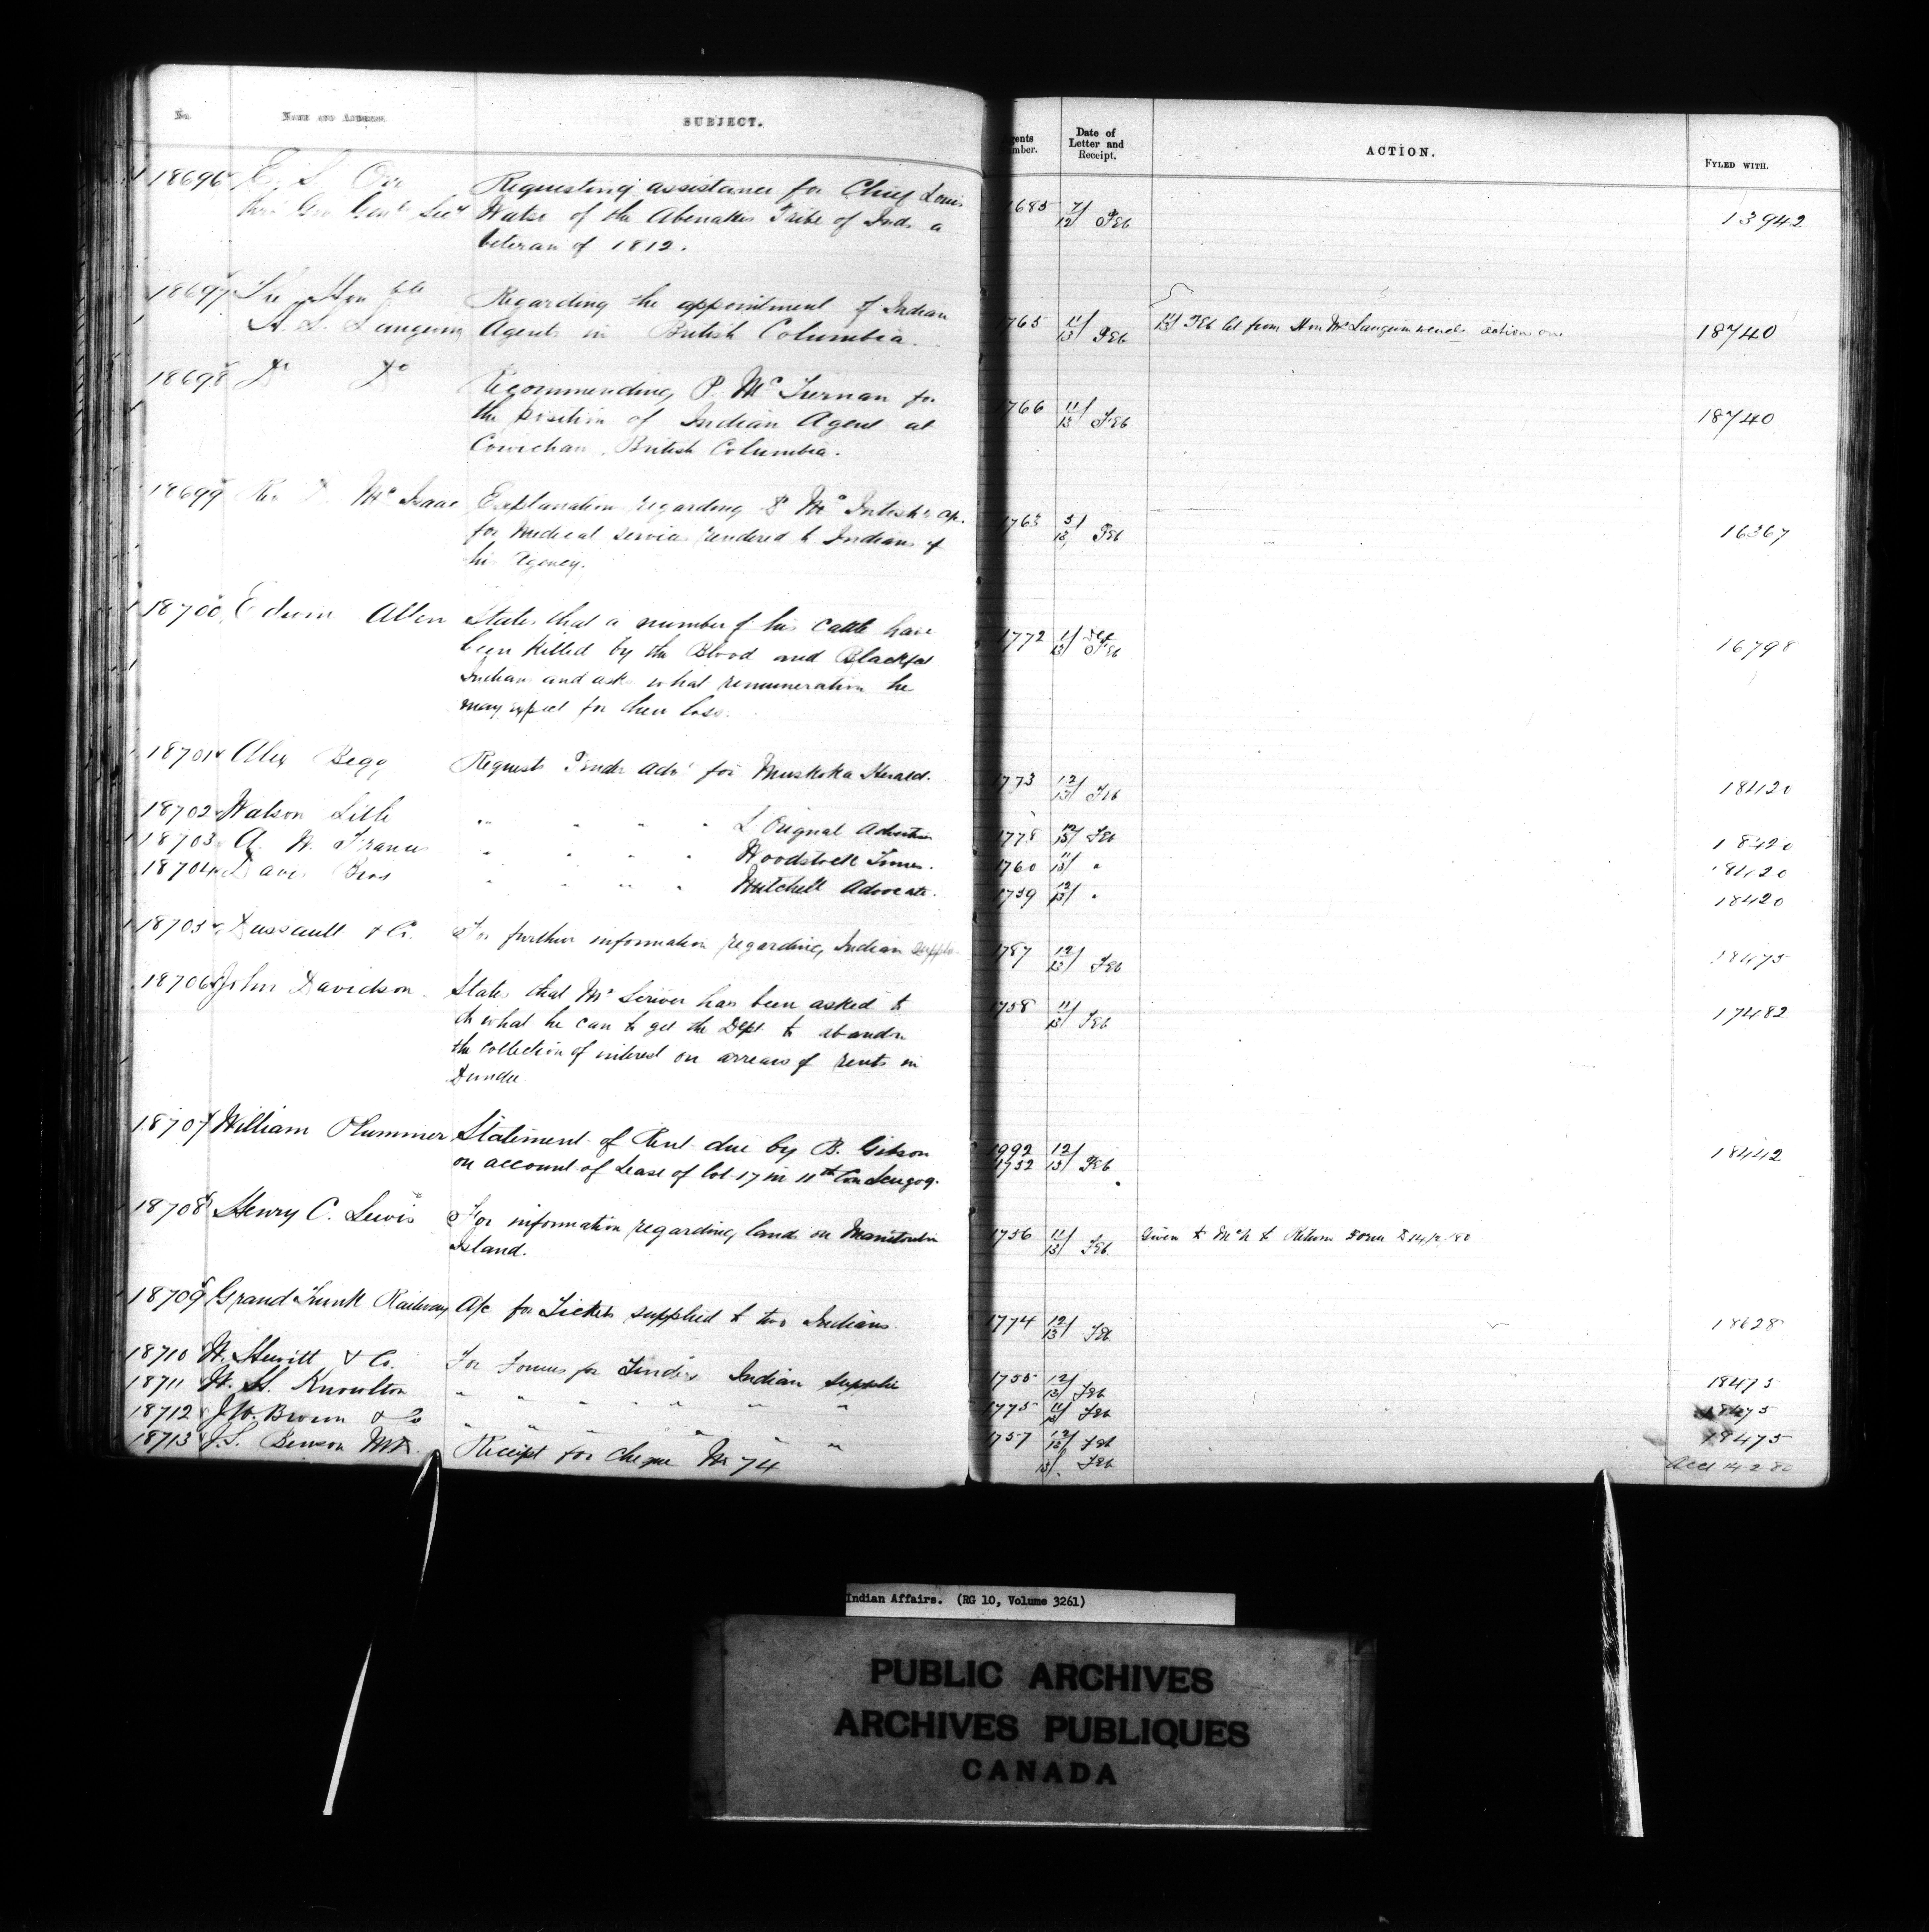 No. NAME AND ADDRESS. SUBJECT.
18696 E. S. Orr Requesting assistance for Chief Louis
thro Gov Genl Secy Water of the Abenakis Tribe of Inds a
Veteran of 1812.
18697 The Honble Regarding the appointment of Indian
H. L. Langevin Agents in British Columbia.
18698 Do Do Recommending P. McTiernan for
the position of Indian Agent at
Cowichan, British Columbia.
18699 Rev D. McIsaac Explanation regarding Dr McIntosh's a/c.
for Medical services rendered to Indians of
his Agency.
18700 Edwin Allen States that a number of his cattle have
been killed by the Blood and Blackfoot
Indians and asks what remuneration he
may expect for their loss.
18701 Alex Begg Requests Tender Advt for Muskoka Herald.
18702 Watson Little " " " " L'Orignal Advertiser
18703 A. W. Francis " " " " Woodstock Times.
18704 Davis Bros " " " " Mitchell Advocate.
18705 Dussault & Co. For further information regarding Indian supplies
18706 John Davidson States that Mr Scriver has been asked to
do what he can to get the Dept to abandon
the collection of interest on arrears of rents in
Dundee.
18707 William Plummer Statement of Rent due by B. Gibson
on account of Lease of lot 17 in 11th Con Scugog.
18708 Henry C. Lewis For information regarding lands on Manitoulin
Island.
18709 Grand Trunk Railway A/c for Tickets supplied to two Indians
18710 W. Hewitt & Co. For Forms for Tenders Indian Supplies
18711 W. H. Knowlton " " " " " "
18712 J. W. Brown & Co " " " " " "
18713 J. S. Benson MD. Receipt for cheque No 74
gents mber. Date of Letter and Receipt. ACTION. FYLED WITH.
1685 7/12 Feb 13942
1765 11/13 Feb 11/13 Feb let from Hon Mr Langevin action on 18740
1766 11/13 Feb 18740
1763 5/13 Feb 16367
1772 1/13 Feb 16798
1773 12/13 Feb 18420
1778 12/13 Feb 18420
1760 11/13 " 18420
1759 12/13 " 18420
1787 12/13 Feb 18475
1758 11/13 Feb 17482
1992
1752 12/13 Feb 18442
1756 11/13 Feb Given to McN to Return Form 14/2/80
1774 12/13 Feb 18628
1755 12/13 Feb 18475
1775 11/13 Feb 18475
1757 12/13 Feb 18475
13/ Feb Accl 14-2-80
Indian Affairs. (RG 10, Volume 3261)
PUBLIC ARCHIVES
ARCHIVES PUBLIQUES
CANADA